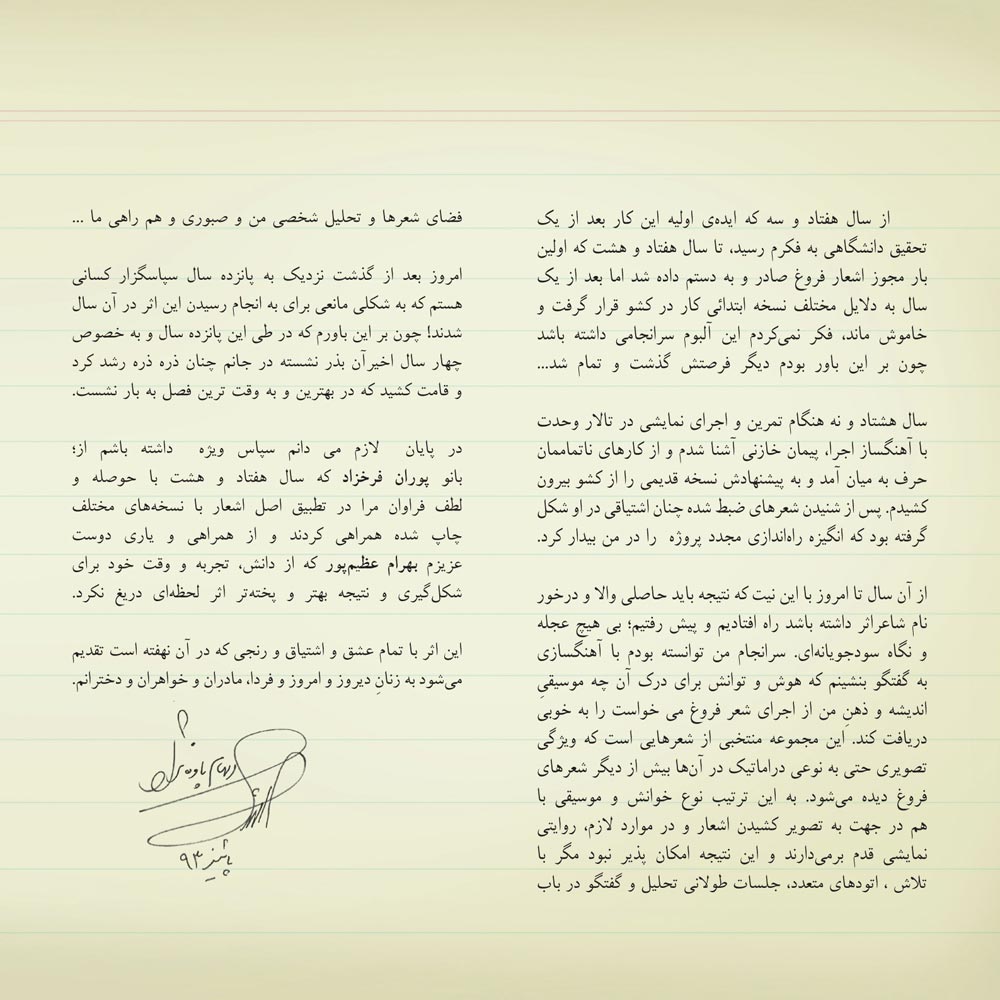 از سال هفتاد و سه که ایده‌ی اولیه این کار بعد از یک
تحقیق دانشگاهی به فکرم رسید، تا سال هفتاد و هشت که اولین
بار مجوز اشعار فروغ صادر و به دستم داده شد اما بعد از یک
سال به دلایل مختلف نسخه ابتدائی کار در کشو قرار گرفت و
خاموش ماند، فکر نمی‌کردم این آلبوم سرانجامی داشته باشد
چون بر این باور بودم دیگر فرصتش گذشت و تمام شد...
سال هشتاد و نه هنگام تمرین و اجرای نمایشی در تالار وحدت
با آهنگساز اجرا، پیمان خازنی آشنا شدم و از کارهای ناتماممان
حرف به میان آمد و به پیشنهادش نسخه قدیمی را از کشو بیرون
کشیدم. پس از شنیدن شعرهای ضبط شده چنان اشتیاقی در او شکل
گرفته بود که انگیزه راه‌اندازی مجدد پروژه را در من بیدار کرد.
از آن سال تا امروز با این نیت که نتیجه باید حاصلی والا و درخور
نام شاعراثر داشته باشد راه افتادیم و پیش رفتیم؛ بی هیچ عجله
و نگاه سودجویانه‌ای. سرانجام من توانسته بودم با آهنگسازی
به گفتگو بنشینم که هوش و توانش برای درک آن چه موسیقیِ
اندیشه و ذهنِ من از اجرای شعر فروغ می خواست را به خوبی
دریافت کند. این مجموعه منتخبی از شعرهایی است که ویژگی
تصویری حتی به نوعی دراماتیک در آن‌ها بیش از دیگر شعرهای
فروغ دیده می‌شود. به این ترتیب نوع خوانش و موسیقی با
هم در جهت به تصویر کشیدن اشعار و در موارد لازم، روایتی
نمایشی قدم برمی‌دارند و این نتیجه امکان پذیر نبود مگر با
تلاش ، اتودهای متعدد، جلسات طولانی تحلیل و گفتگو در باب
فضای شعرها و تحلیل شخصی من و صبوری و هم راهی ما ...
امروز بعد از گذشت نزدیک به پانزده سال سپاسگزار کسانی
هستم که به شکلی مانعی برای به انجام رسیدن این اثر در آن سال
شدند! چون بر این باورم که در طی این پانزده سال و به خصوص
چهار سال اخیرآن بذر نشسته در جانم چنان ذره ذره رشد کرد
و قامت کشید که در بهترین و به وقت ترین فصل به بار نشست.
در پایان لازم می دانم سپاس ویژه داشته باشم از؛
بانو پوران فرخزاد که سال هفتاد و هشت با حوصله و
لطف فراوان مرا در تطبیق اصل اشعار با نسخه‌های مختلف
چاپ شده همراهی کردند و از همراهی و یاری دوست
عزیزم بهرام عظیم‌پور که از دانش، تجربه و وقت خود برای
شکل‌گیری و نتیجه بهتر و پخته‌تر اثر لحظه‌ای دریغ نکرد.
این اثر با تمام عشق و اشتیاق و رنجی که در آن نهفته است تقدیم
می‌شود به زنانِ دیروز و امروز و فردا، مادران و خواهران و دخترانم.
پاییز ۹۳